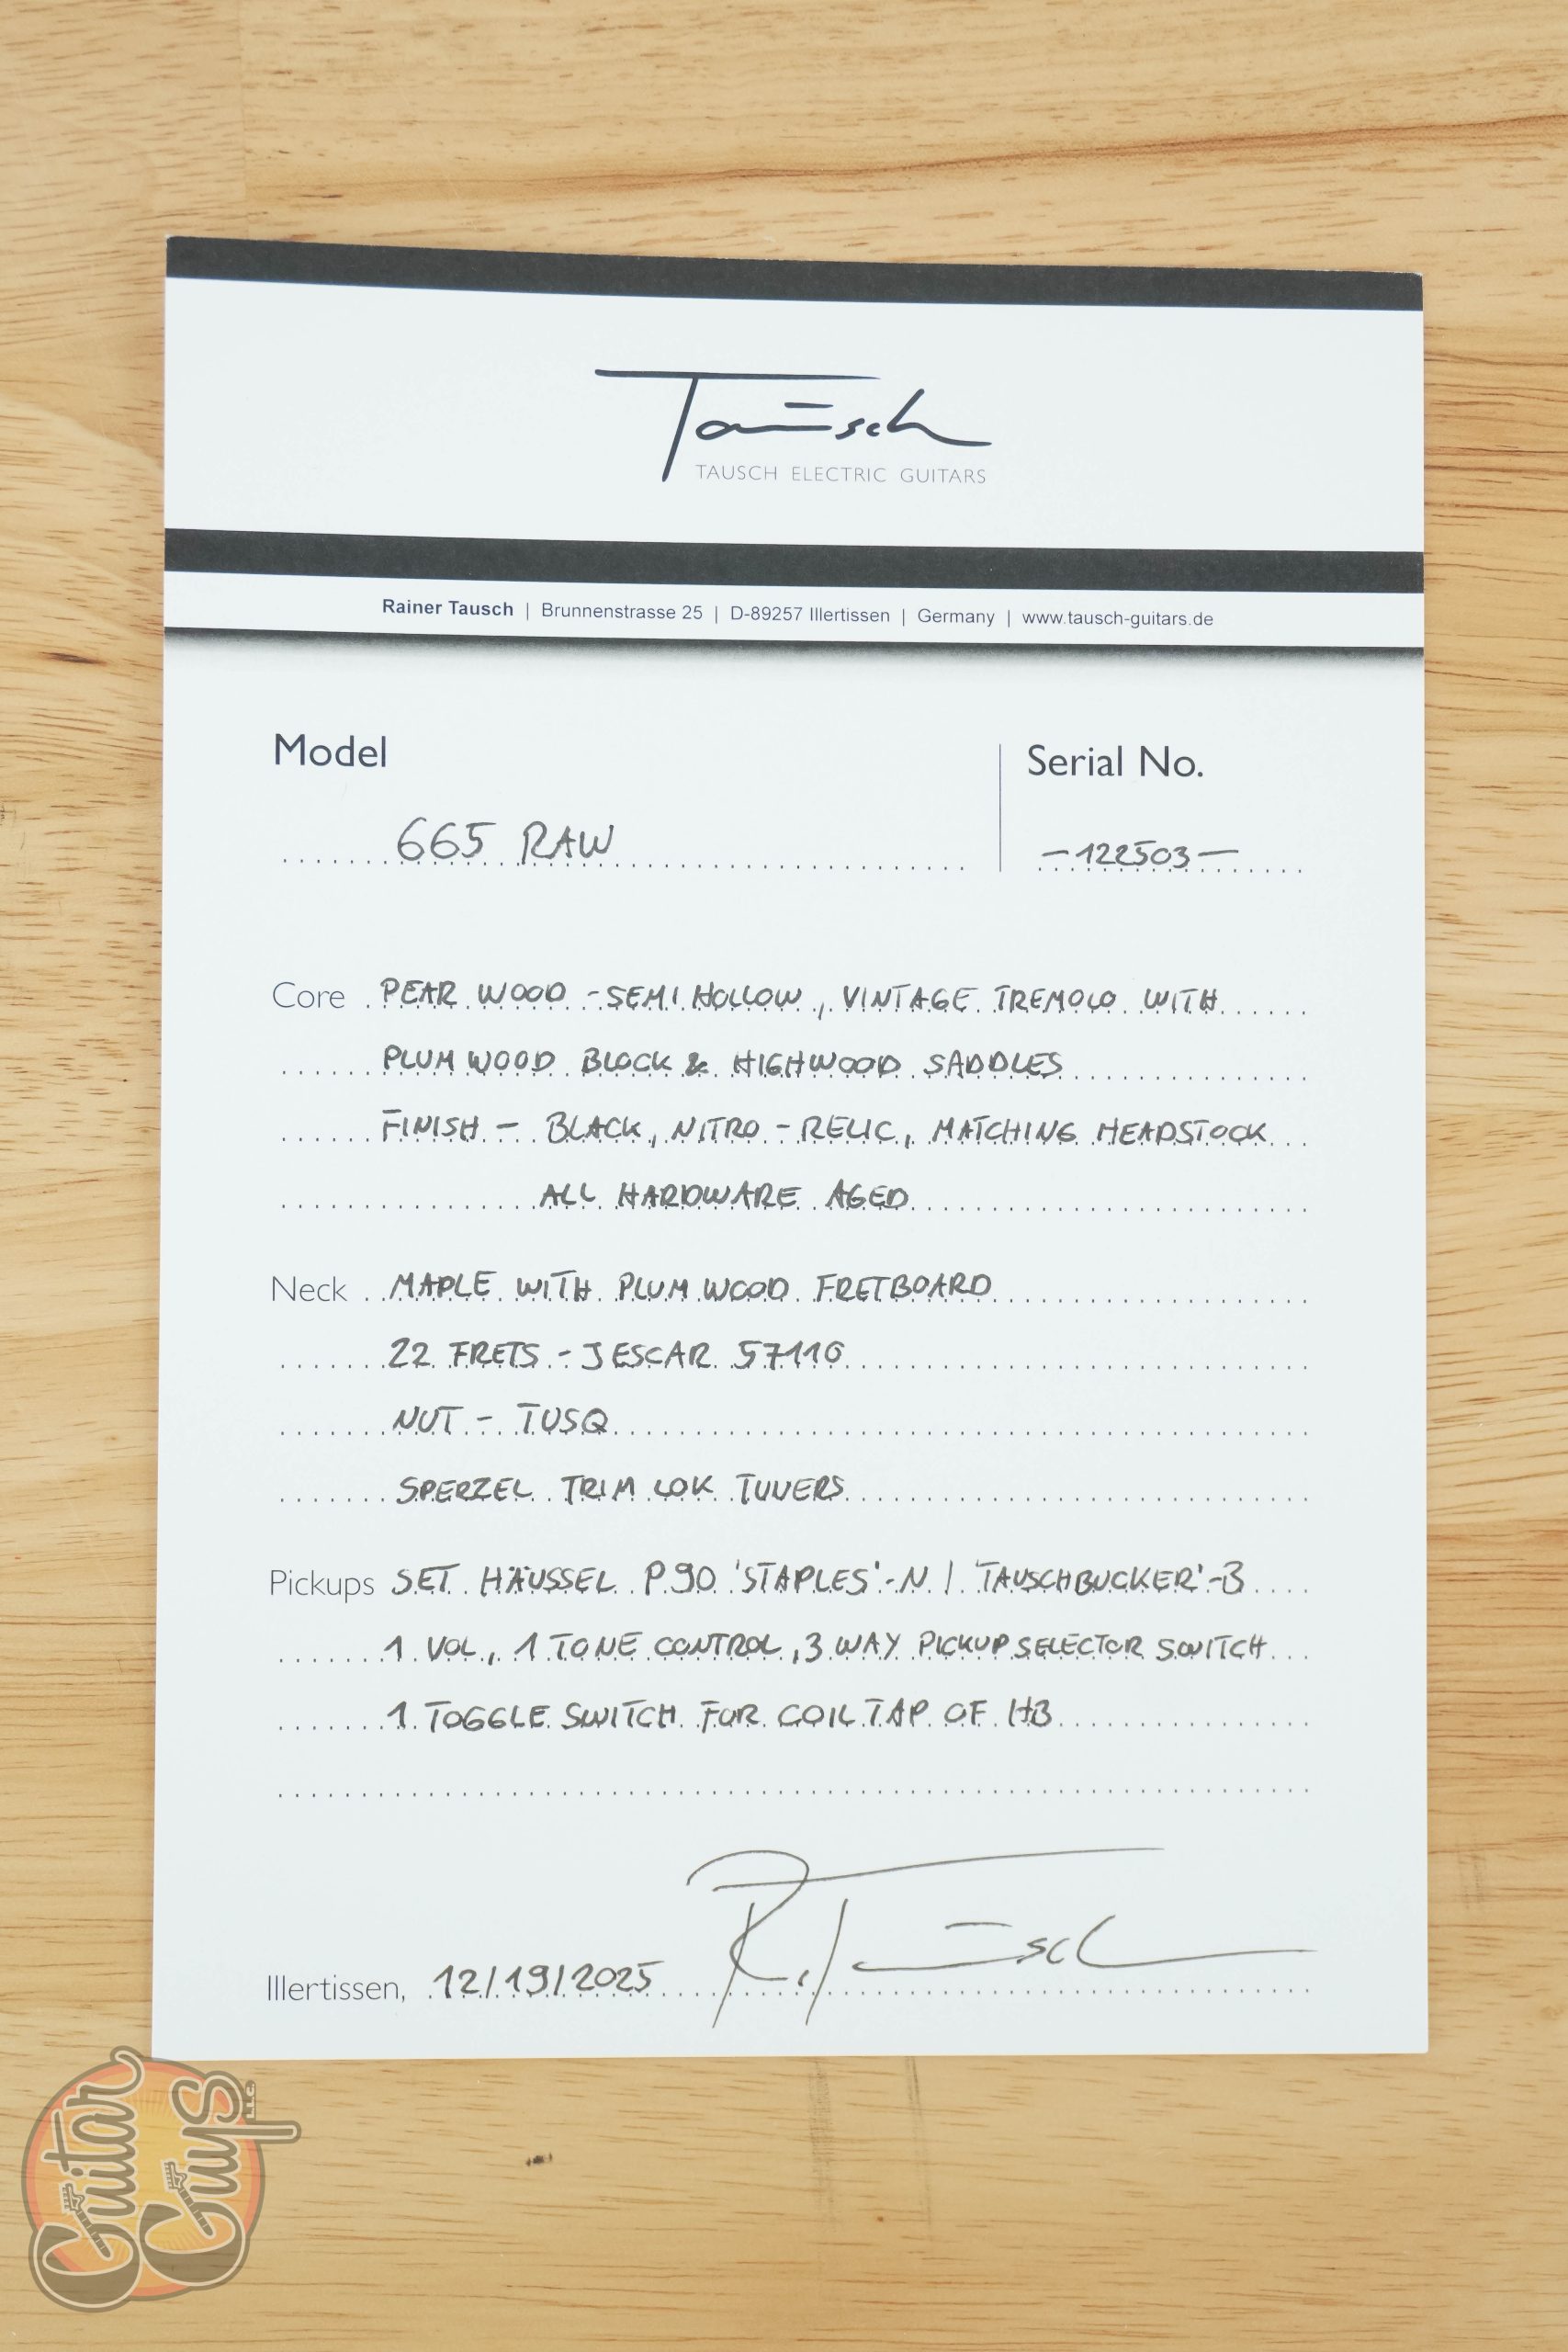 Tausch
TAUSCH ELECTRIC GUITARS
Rainer Tausch | Brunnenstrasse 25 | D-89257 Illertissen | Germany | www.tausch-guitars.de
Model
Serial No.
665 RAW
-122503-
Core PEAR WOOD - SEMI HOLLOW, VINTAGE TREMOLO WITH
PLUM WOOD BLOCK & HIGHWOOD SADDLES
FINISH - BLACK, NITRO - RELIC, MATCHING HEADSTOCK
ALL HARDWARE AGED
Neck MAPLE WITH PLUM WOOD FRETBOARD
22 FRETS - JESCAR 57110
NUT - TUSQ
SPERZEL TRIM LOK TUNERS
Pickups SET HÄUSSEL P90 'STAPLES'-N / 'TAUSCHBUCKER'-B
1 VOL, 1 TONE CONTROL, 3 WAY PICKUP SELECTOR SWITCH
1 TOGGLE SWITCH FOR COIL TAP OF HB
R. Tausch
Illertissen, 12/19/2025
Guitar
Guys
LLC.